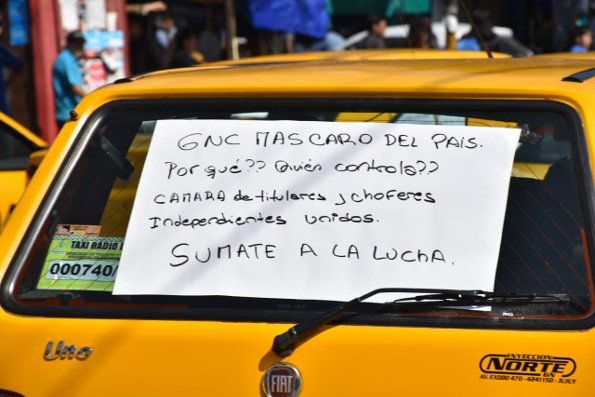 GNC MAS CARO DEL PAIS.
Por qué?? Quién controla??
CAMARA de titulares y choferes
Independientes unidos.
SUMATE A LA LUCHA.
TAXI RADIO
000740/
Uno
FIAT
INYECCION
NORTE
GN
AV. EXODO 470 - 4241150 - JUJUY